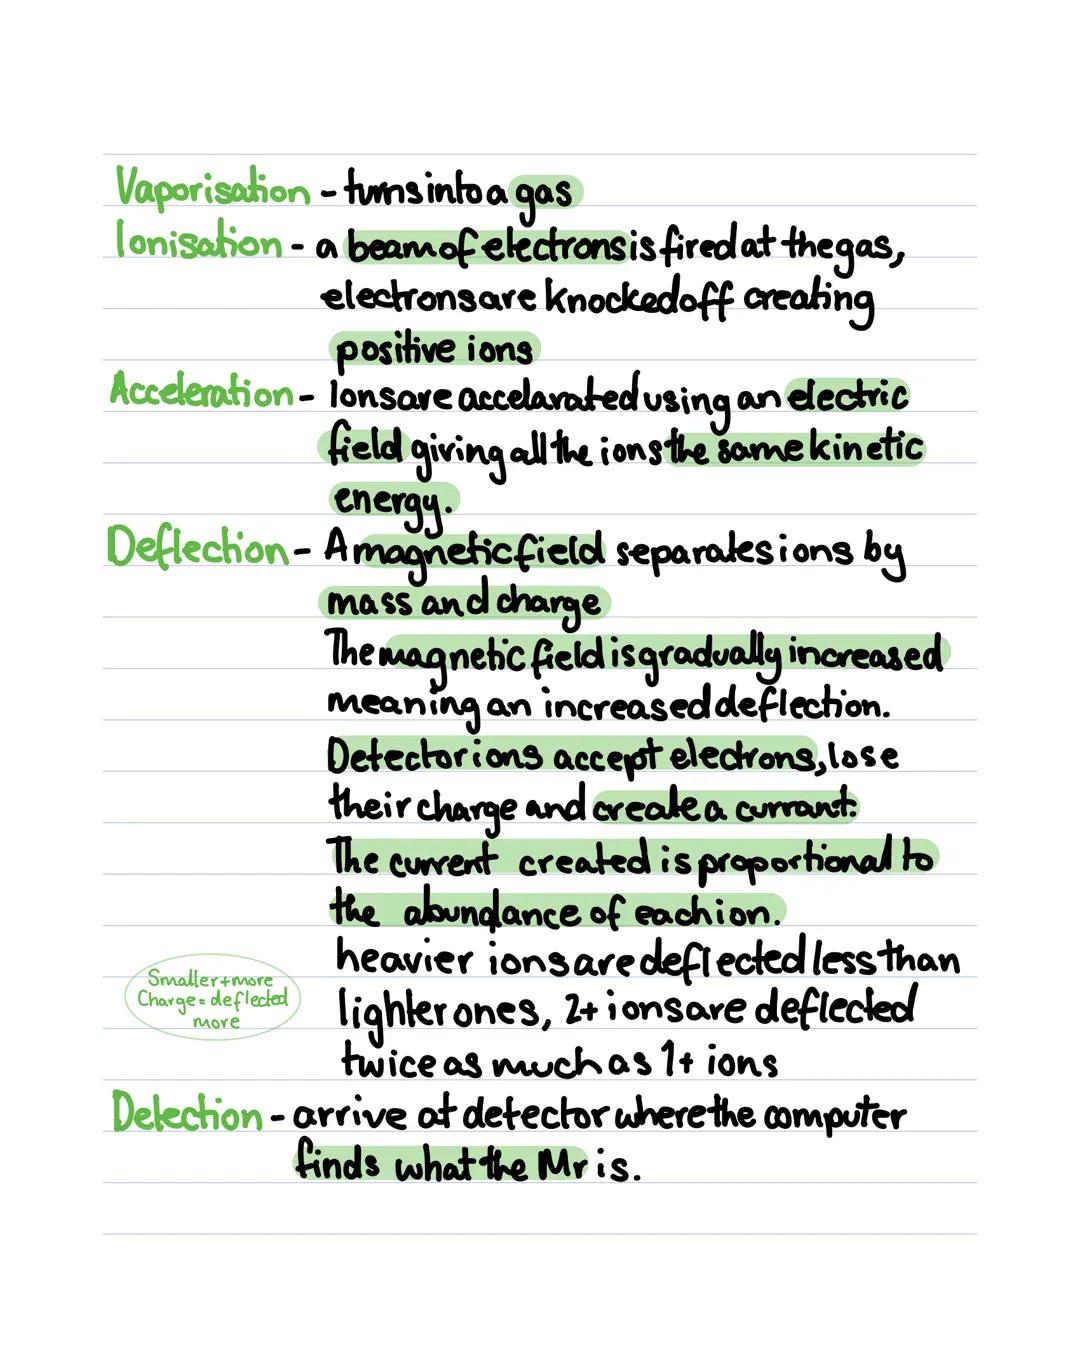 Vaporisation - turns into a gas
Ionisation - a beam of electrons is fired at the gas,
electrons are knocked off creating
positive ions
Acceleration - Ions are accelarated using an electric
field giving all the ions the same kinetic
energy.
Deflection - A magnetic field separates ions by
mass and charge
The magnetic field is gradually increased
meaning an increased deflection.
Detector ions accept electrons, lose
their charge and create a currant.
The current created is proportional to
the abundance of each ion.
heavier ions are deflected less than
lighter ones, 2+ ions are deflected
twice as much as 1+ ions
Smaller + more
Charge = deflected
more
Detection - arrive at detector where the computer
finds what the Mr is.